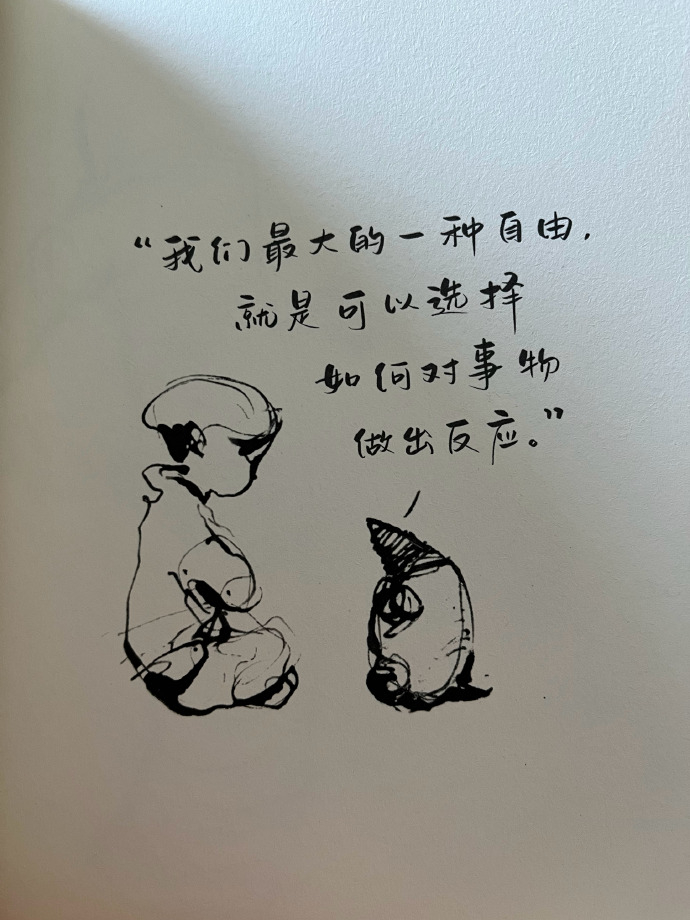 “我们最大的一种自由，
就是可以选择
如何对事物
做出反应。”